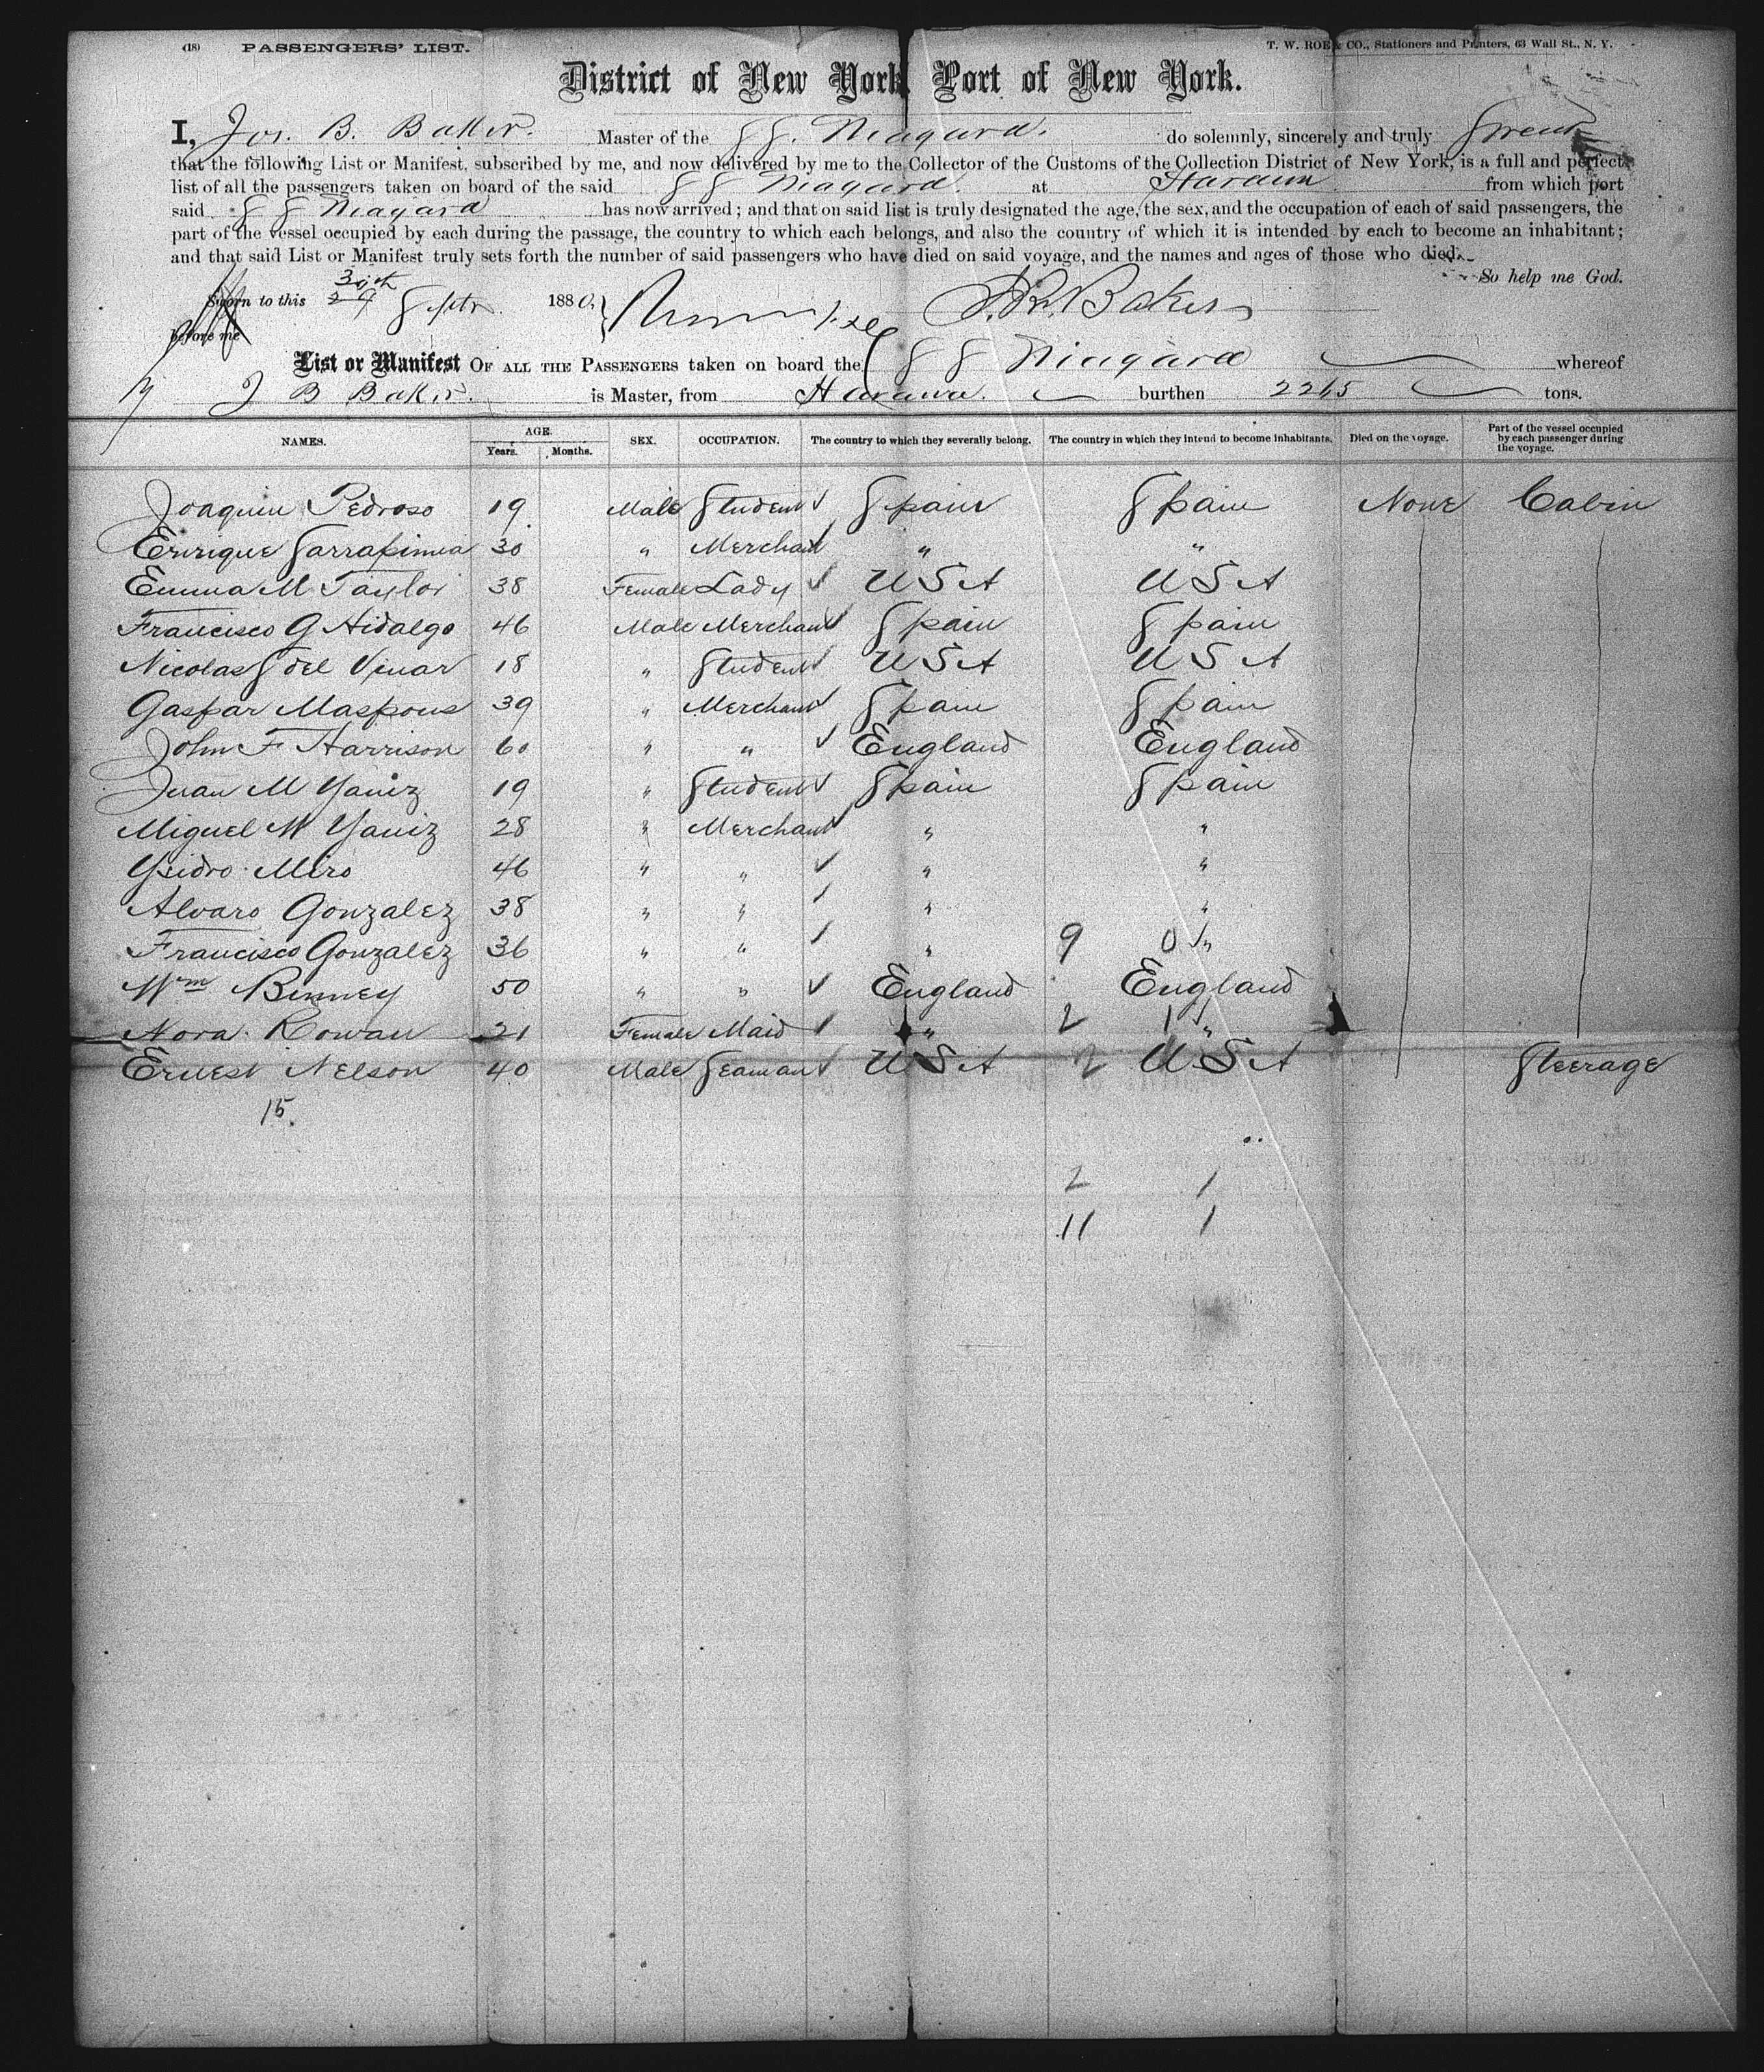 (18) PASSENGERS' LIST. T. W. ROE & CO., Stationers and Printers, 63 Wall St., N. Y.
District of New York Port of New York.
I, Jos. B. Baker. Master of the SS. Niagara. do solemnly, sincerely and truly Swear
that the following List or Manifest, subscribed by me, and now delivered by me to the Collector of the Customs of the Collection District of New York, is a full and perfect
list of all the passengers taken on board of the said SS Niagara at Havana from which port
said SS Niagara has now arrived; and that on said list is truly designated the age, the sex, and the occupation of each of said passengers, the
part of the vessel occupied by each during the passage, the country to which each belongs, and also the country of which it is intended by each to become an inhabitant;
and that said List or Manifest truly sets forth the number of said passengers who have died on said voyage, and the names and ages of those who died.
So help me God.
Sworn to this 29 30th Septr. 1880. J. B. Baker
before me
List or Manifest OF ALL THE PASSENGERS taken on board the SS Niagara whereof
J B Baker. is Master, from Havana. burthen 2265 tons.
NAMES. AGE. Years. Months. SEX. OCCUPATION. The country to which they severally belong. The country in which they intend to become inhabitants. Died on the voyage. Part of the vessel occupied by each passenger during the voyage.
Joaquin Pedroso 19 Male Student Spain Spain None Cabin
Enrique 30 " Merchant " "
Emma M Taylor 38 Female Lady USA USA
Francisco G Hidalgo 46 Male Merchant Spain Spain
Nicolas S del 18 " Student USA USA
Gaspar Maspous 39 " Merchant Spain Spain
John F Harrison 60 " " England England
Juan M Yaniz 19 " Student Spain Spain
Miguel M Yaniz 28 " Merchant " "
Ysidro Miro 46 " " " "
Alvaro Gonzalez 38 " " " "
Francisco Gonzalez 36 " " " 9 0 "
Wm Binney 50 " " England England
Nora Rowan 21 Female Maid " 2 1 "
Ernest Nelson 40 Male Seaman USA 2 USA Steerage
15.
2 1
11 1